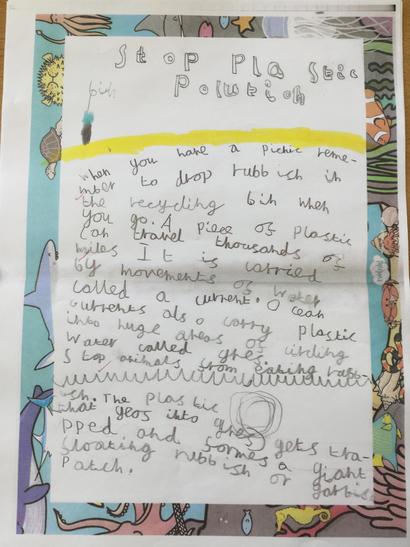 Stop Pla stic
Polutioh
when you have a picnic reme-
mber to drop rubbish in
the recycling bin when
you go. A piece of plastic
can travel thousands of
miles It is carried
by movements of water
called a current. O cean
currents also carry plastic
into huge areas of circling
water called gyres.
Stop animals from eating rubb-
ish. The plastic
that geos into gyres gets tra-
pped and formes a giant
floating rubbish or garbis
Patch.